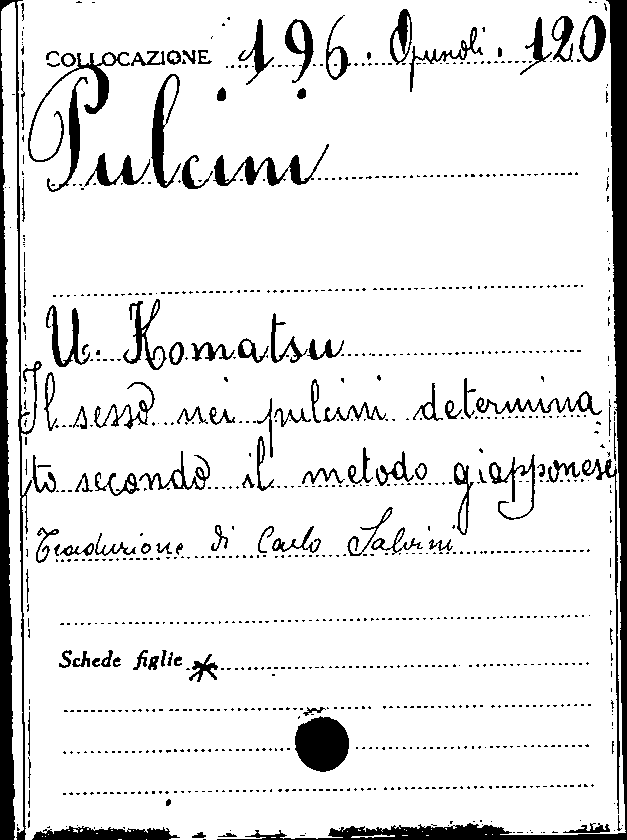 COLLOCAZIONE 196. Opuscoli. 120
Pulcini
U. Komatsu
Il sesso nei pulcini determina
to secondo il metodo giapponese
Traduzione di Carlo Salvini
Schede figlie *